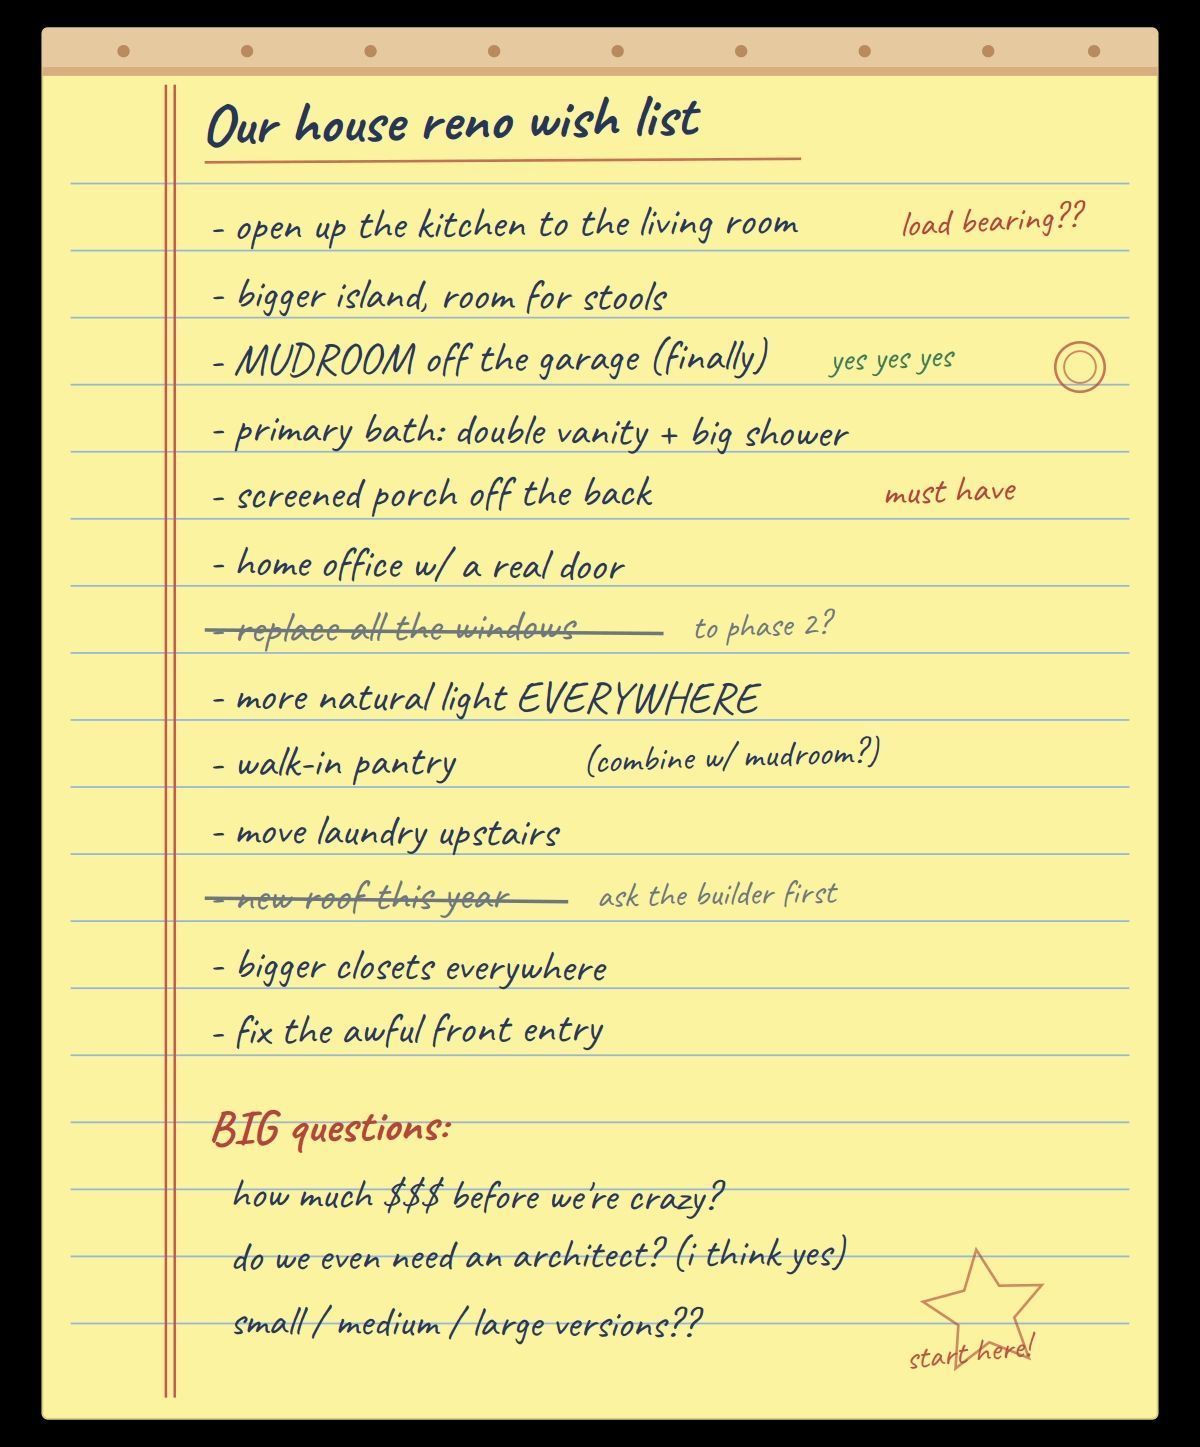 Our house reno wish list
- open up the kitchen to the living room load bearing??
- bigger island, room for stools
- MUDROOM off the garage (finally) yes yes yes
- primary bath: double vanity + big shower
- screened porch off the back must have
- home office w/ a real door
- replace all the windows to phase 2?
- more natural light EVERYWHERE
- walk-in pantry (combine w/ mudroom?)
- move laundry upstairs
- new roof this year ask the builder first
- bigger closets everywhere
- fix the awful front entry
BIG questions:
how much $$$ before we're crazy?
do we even need an architect? (i think yes)
small / medium / large versions??
start here!